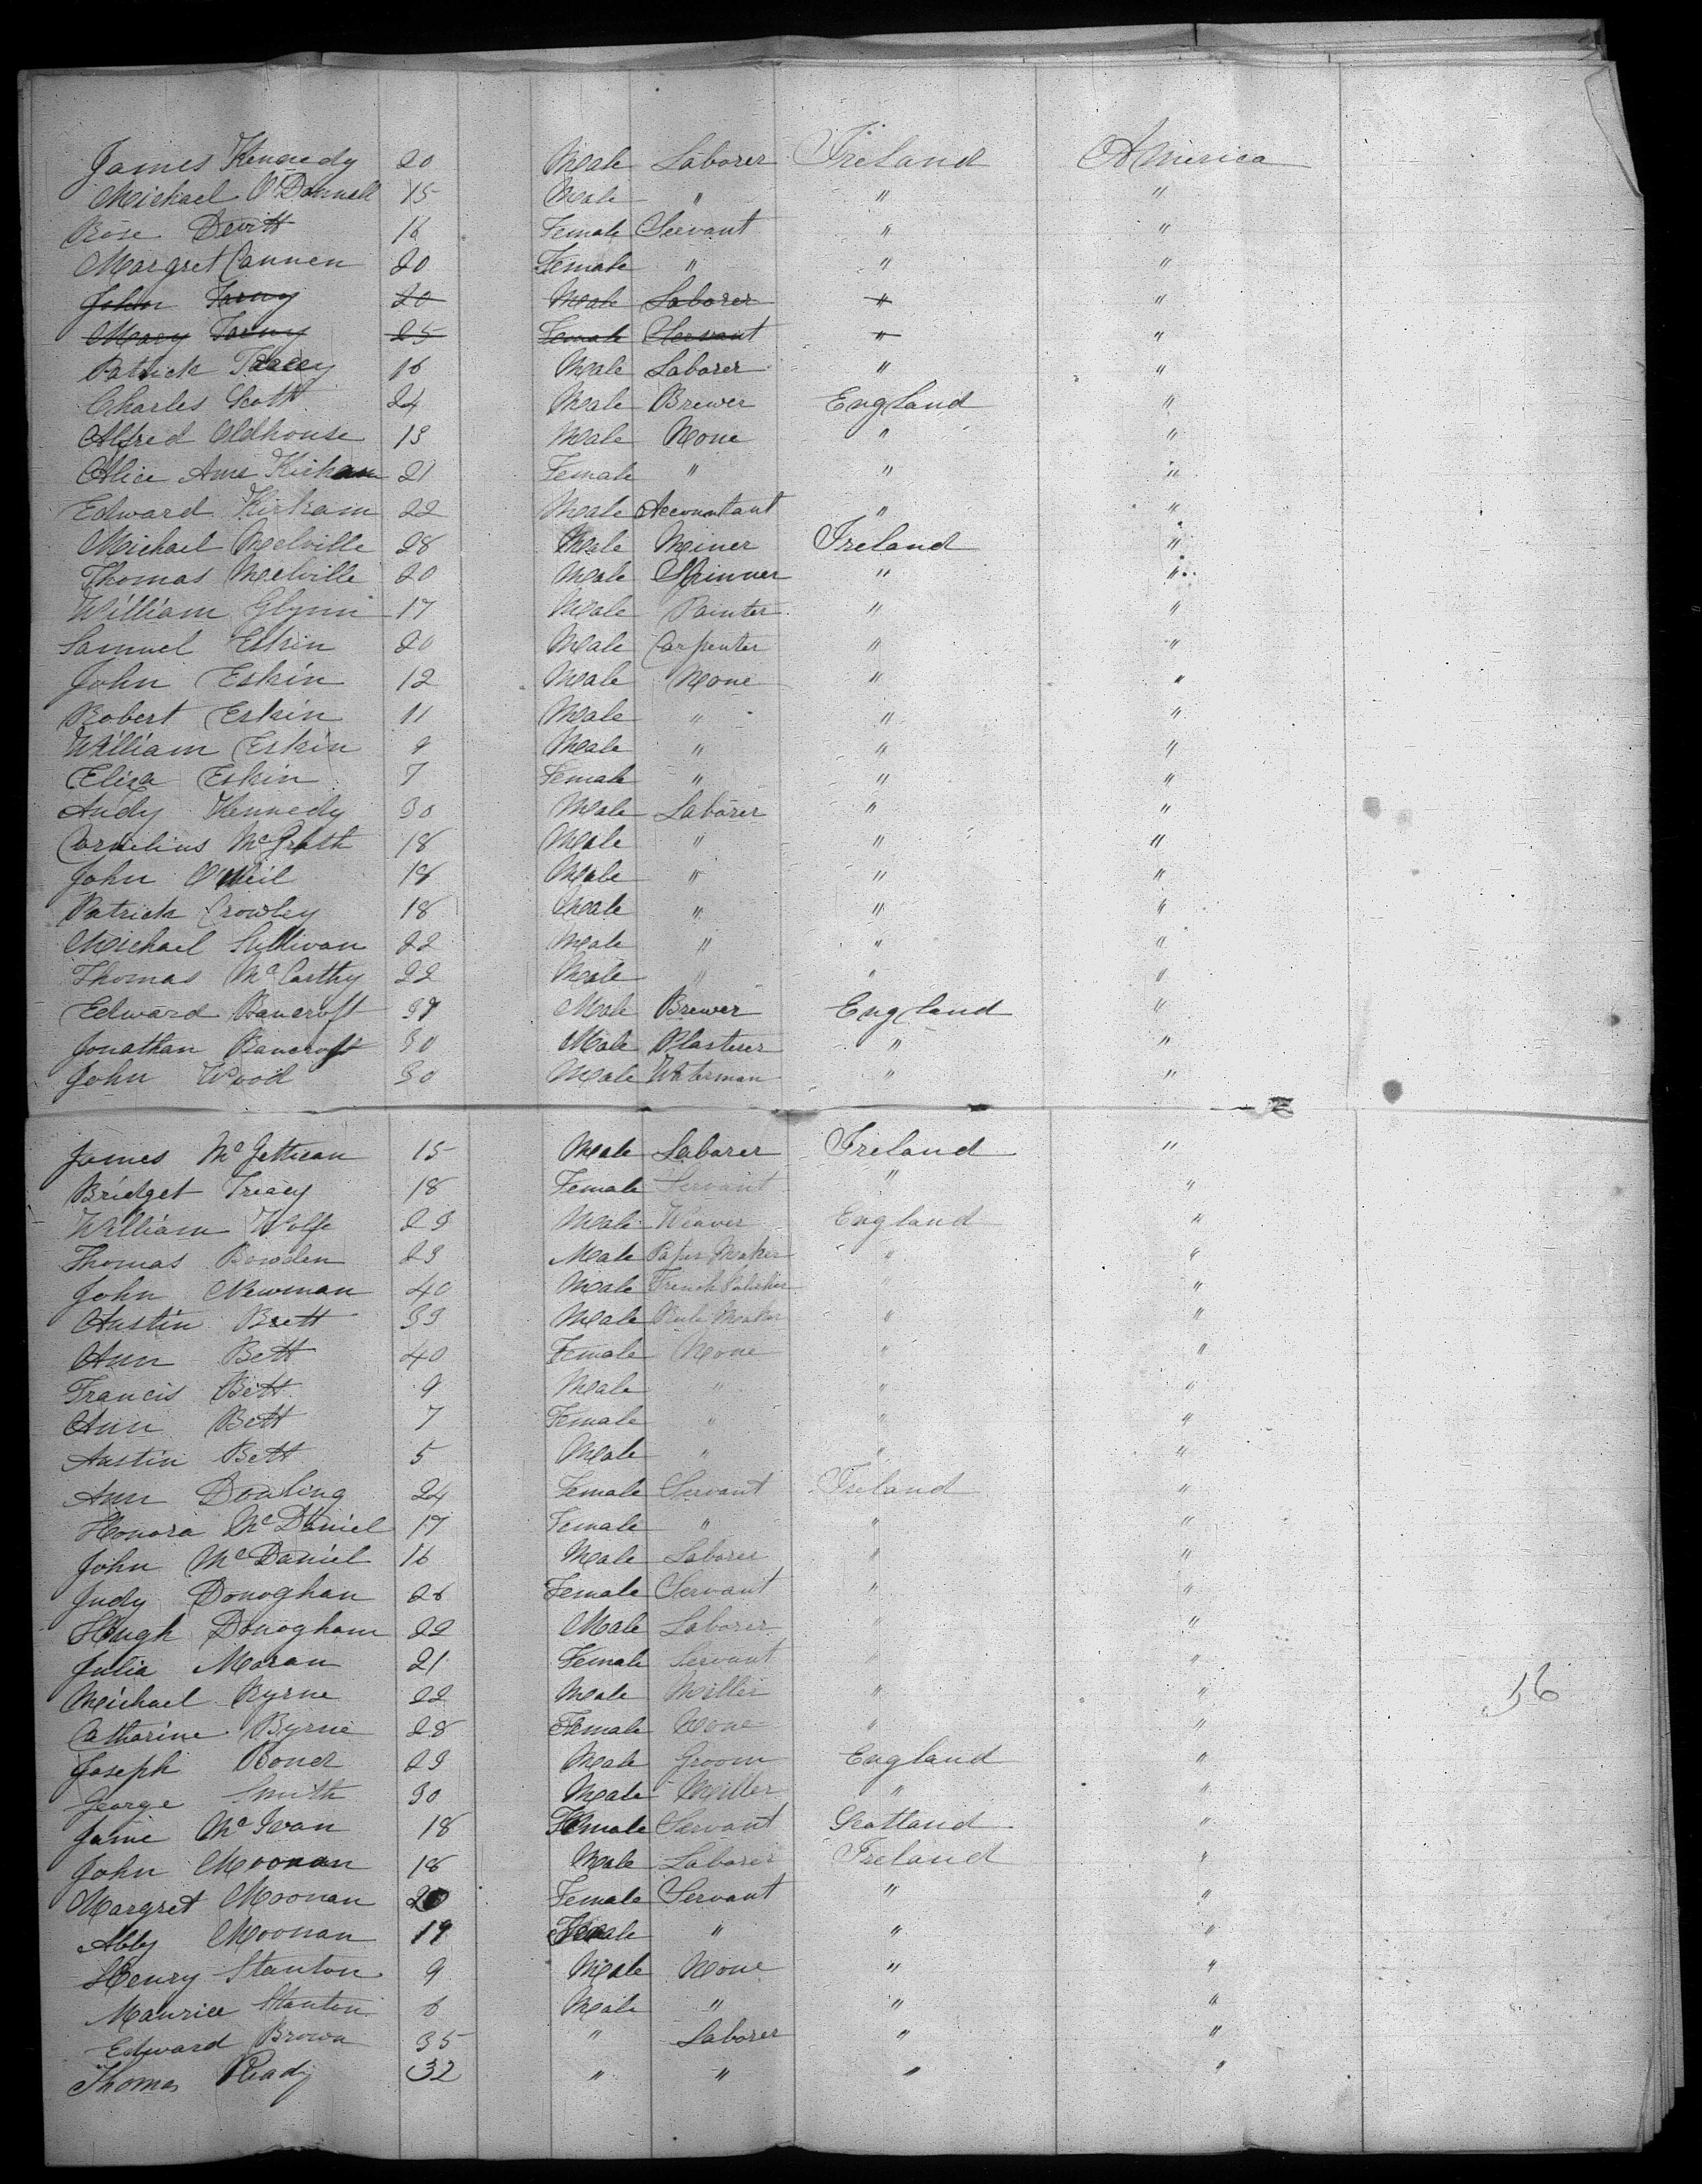 James Kennedy 20 Male Laborer Ireland America
Michael O'Donnell 15 Male " " "
Rose Devitt 16 Female Servant " "
Margret Cannen 20 Female " " "
John 20 Male Laborer " "
Mary 25 Female Servant " "
Patrick Tracey 16 Male Laborer " "
Charles Scott 24 Male Brewer England "
Alfred Oldhouse 19 Male None " "
Alice Ame Kirham 21 Female " " "
Edward Kirham 22 Male Accountant " "
Michael Melville 28 Male Miner Ireland "
Thomas Melville 20 Male Spinner " "
William Glynn 17 Male Painter " "
Samuel Eskin 20 Male Carpenter " "
John Eskin 12 Male None " "
Robert Eskin 11 Male " " "
William Eskin 9 Male " " "
Eliza Eskin 7 Female " " "
Andy Kennedy 30 Male Laborer " "
Cornelius McGrath 18 Male " " "
John O'Neil 18 Male " " "
Patrick Crowley 18 Male " " "
Michael Sullivan 22 Male " " "
Thomas McCarthy 22 Male " " "
Edward Bancroft Male Brewer England "
Jonathan Bancroft 30 Male Plasterer " "
John Wood 30 Male Waterman " "
James McGettican 15 Male Laborer Ireland "
Bridget Treacy 18 Female Servant " "
William Wolfe 23 Male Weaver England "
Thomas Bowden 23 Male Paper Maker " "
John Newman 40 Male French Polisher " "
Austin Brett 33 Male Rule Maker " "
Ann Bett 40 Female None " "
Francis Bett 9 Male " " "
Ann Bett 7 Female " " "
Austin Bett 5 Male " " "
Ann Dowling 24 Female Servant Ireland "
Honora McDaniel 17 Female " " "
John McDaniel 16 Male Laborer " "
Judy Donoghan 26 Female Servant " "
Hugh Donoghan 22 Male Laborer " "
Julia Moran 21 Female Servant " "
Michael Byrne 22 Male Miller " "
Catharine Byrne 28 Female None " "
Joseph Boner 23 Male Groom England "
George Smith 30 Male Miller " "
Jame McIvan 18 Female Servant Scotland "
John Moonan 18 Male Laborer Ireland "
Margret Moonan 20 Female Servant " "
Abby Moonan 19 Female " " "
Henry Stanton 9 Male None " "
Maurice Stanton 6 Male " " "
Edward Brown 35 " Laborer " "
Thomas Ready 32 " " " "
56